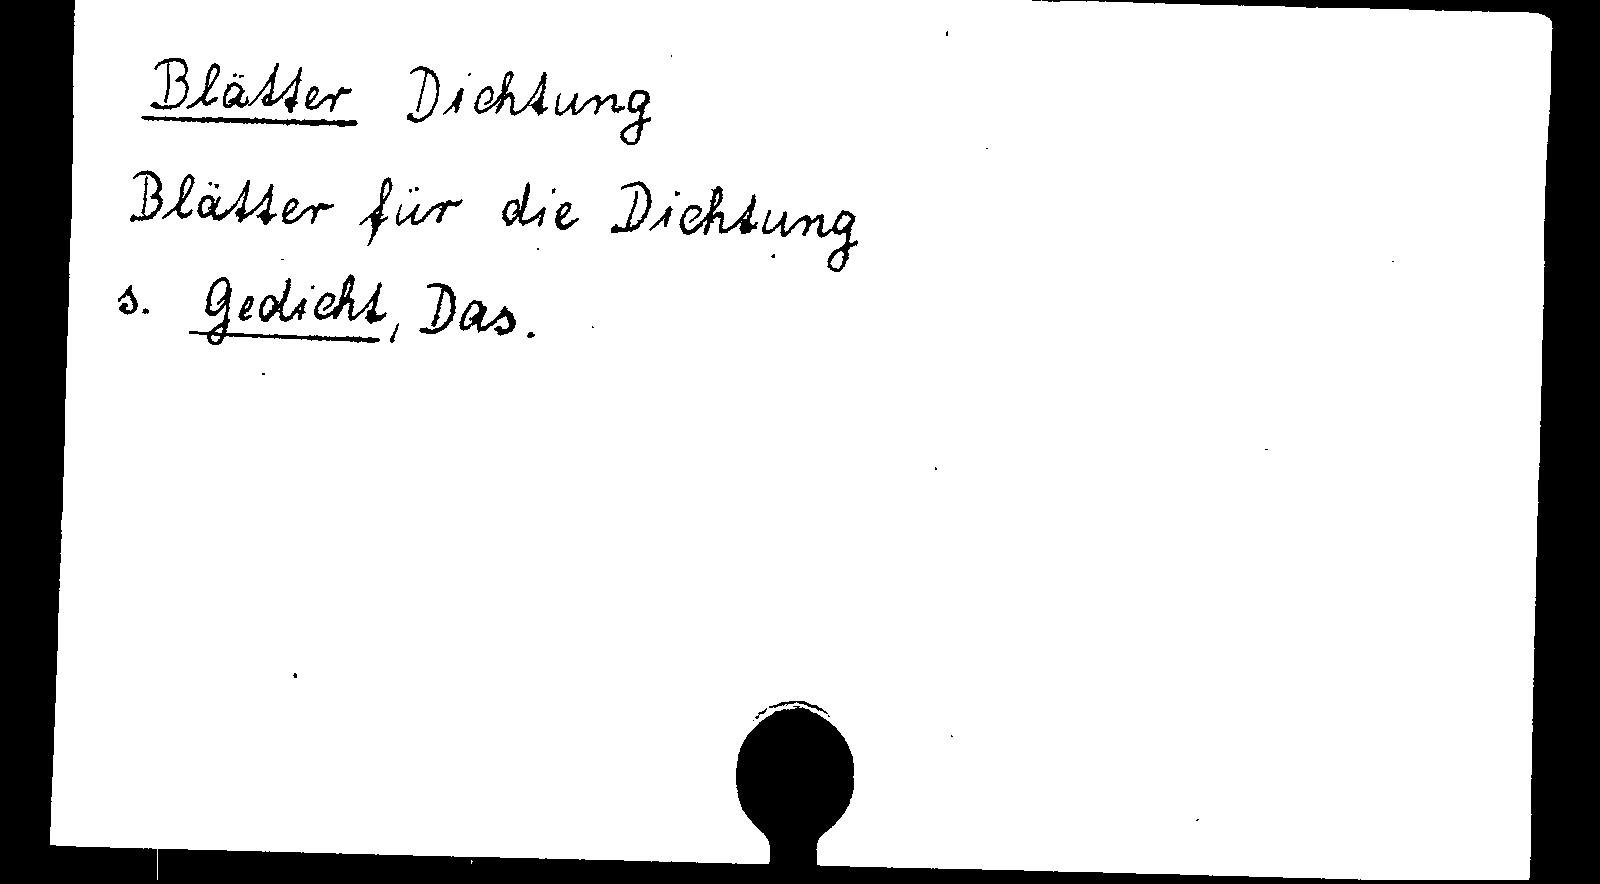 Blätter Dichtung
Blätter für die Dichtung
s. Gedicht, Das.